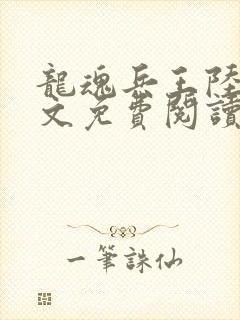 龍魂兵王陸
文免費閱讀
一筆誅仙